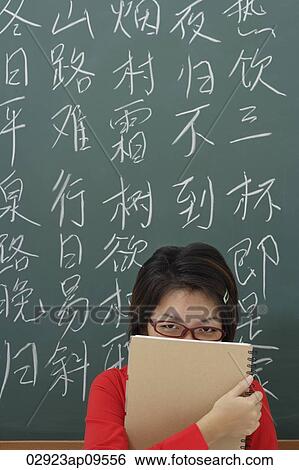 冬日平泉路晚归
山路难行日易斜
烟村霜树欲
夜归不到
热饮三杯即是
02923ap09556 www.fotosearch.com